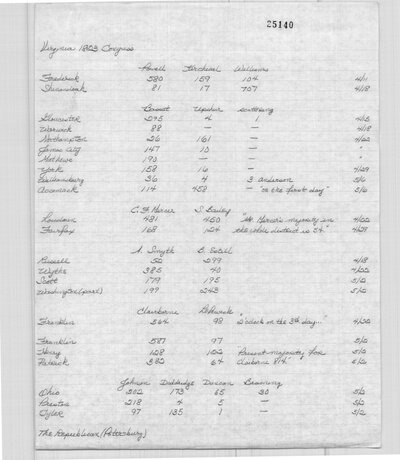 25140
Virginia 1823 Congress
Powell Tircheval Williams
Frederick 580 159 104 4/11
Shenandoah 81 17 707 4/18
Bassett Upshur scattering
Gloucester 295 4 1
Warwick 88 — — 4/18
Northampton 26 161 —
James City 147 10 — "
Mathews 190 — — "
York 158 16 — 4/29
Williamsburg 36 4 3 Anderson 5/6
Accomack 114 458 — "on the first day" 5/6
C. F. Mercer S. Bailey
Loudoun 481 450 "Mr. Mercer's majority in 4/22
Fairfax 168 124 the whole district is 54" 4/29
A. Smyth B. Estill
Russell 50 299 4/18
Wythe 385 40 4/22
Scott 179 195 5/2
Washington (part) 199 243 5/2
Claiborne
Franklin 564 98 "o'clock on the 3d day..." 4/22
Franklin 587 97 5/2
Henry 128 122 "Present majority for 5/2
Patrick 382 64 Claiborne 814" 5/2
Johnson Doddridge Duncan Browning
Ohio 202 173 65 30 5/2
Preston 218 4 5 — 5/2
Tyler 97 135 1 — 5/2
The Republican (Petersburg)